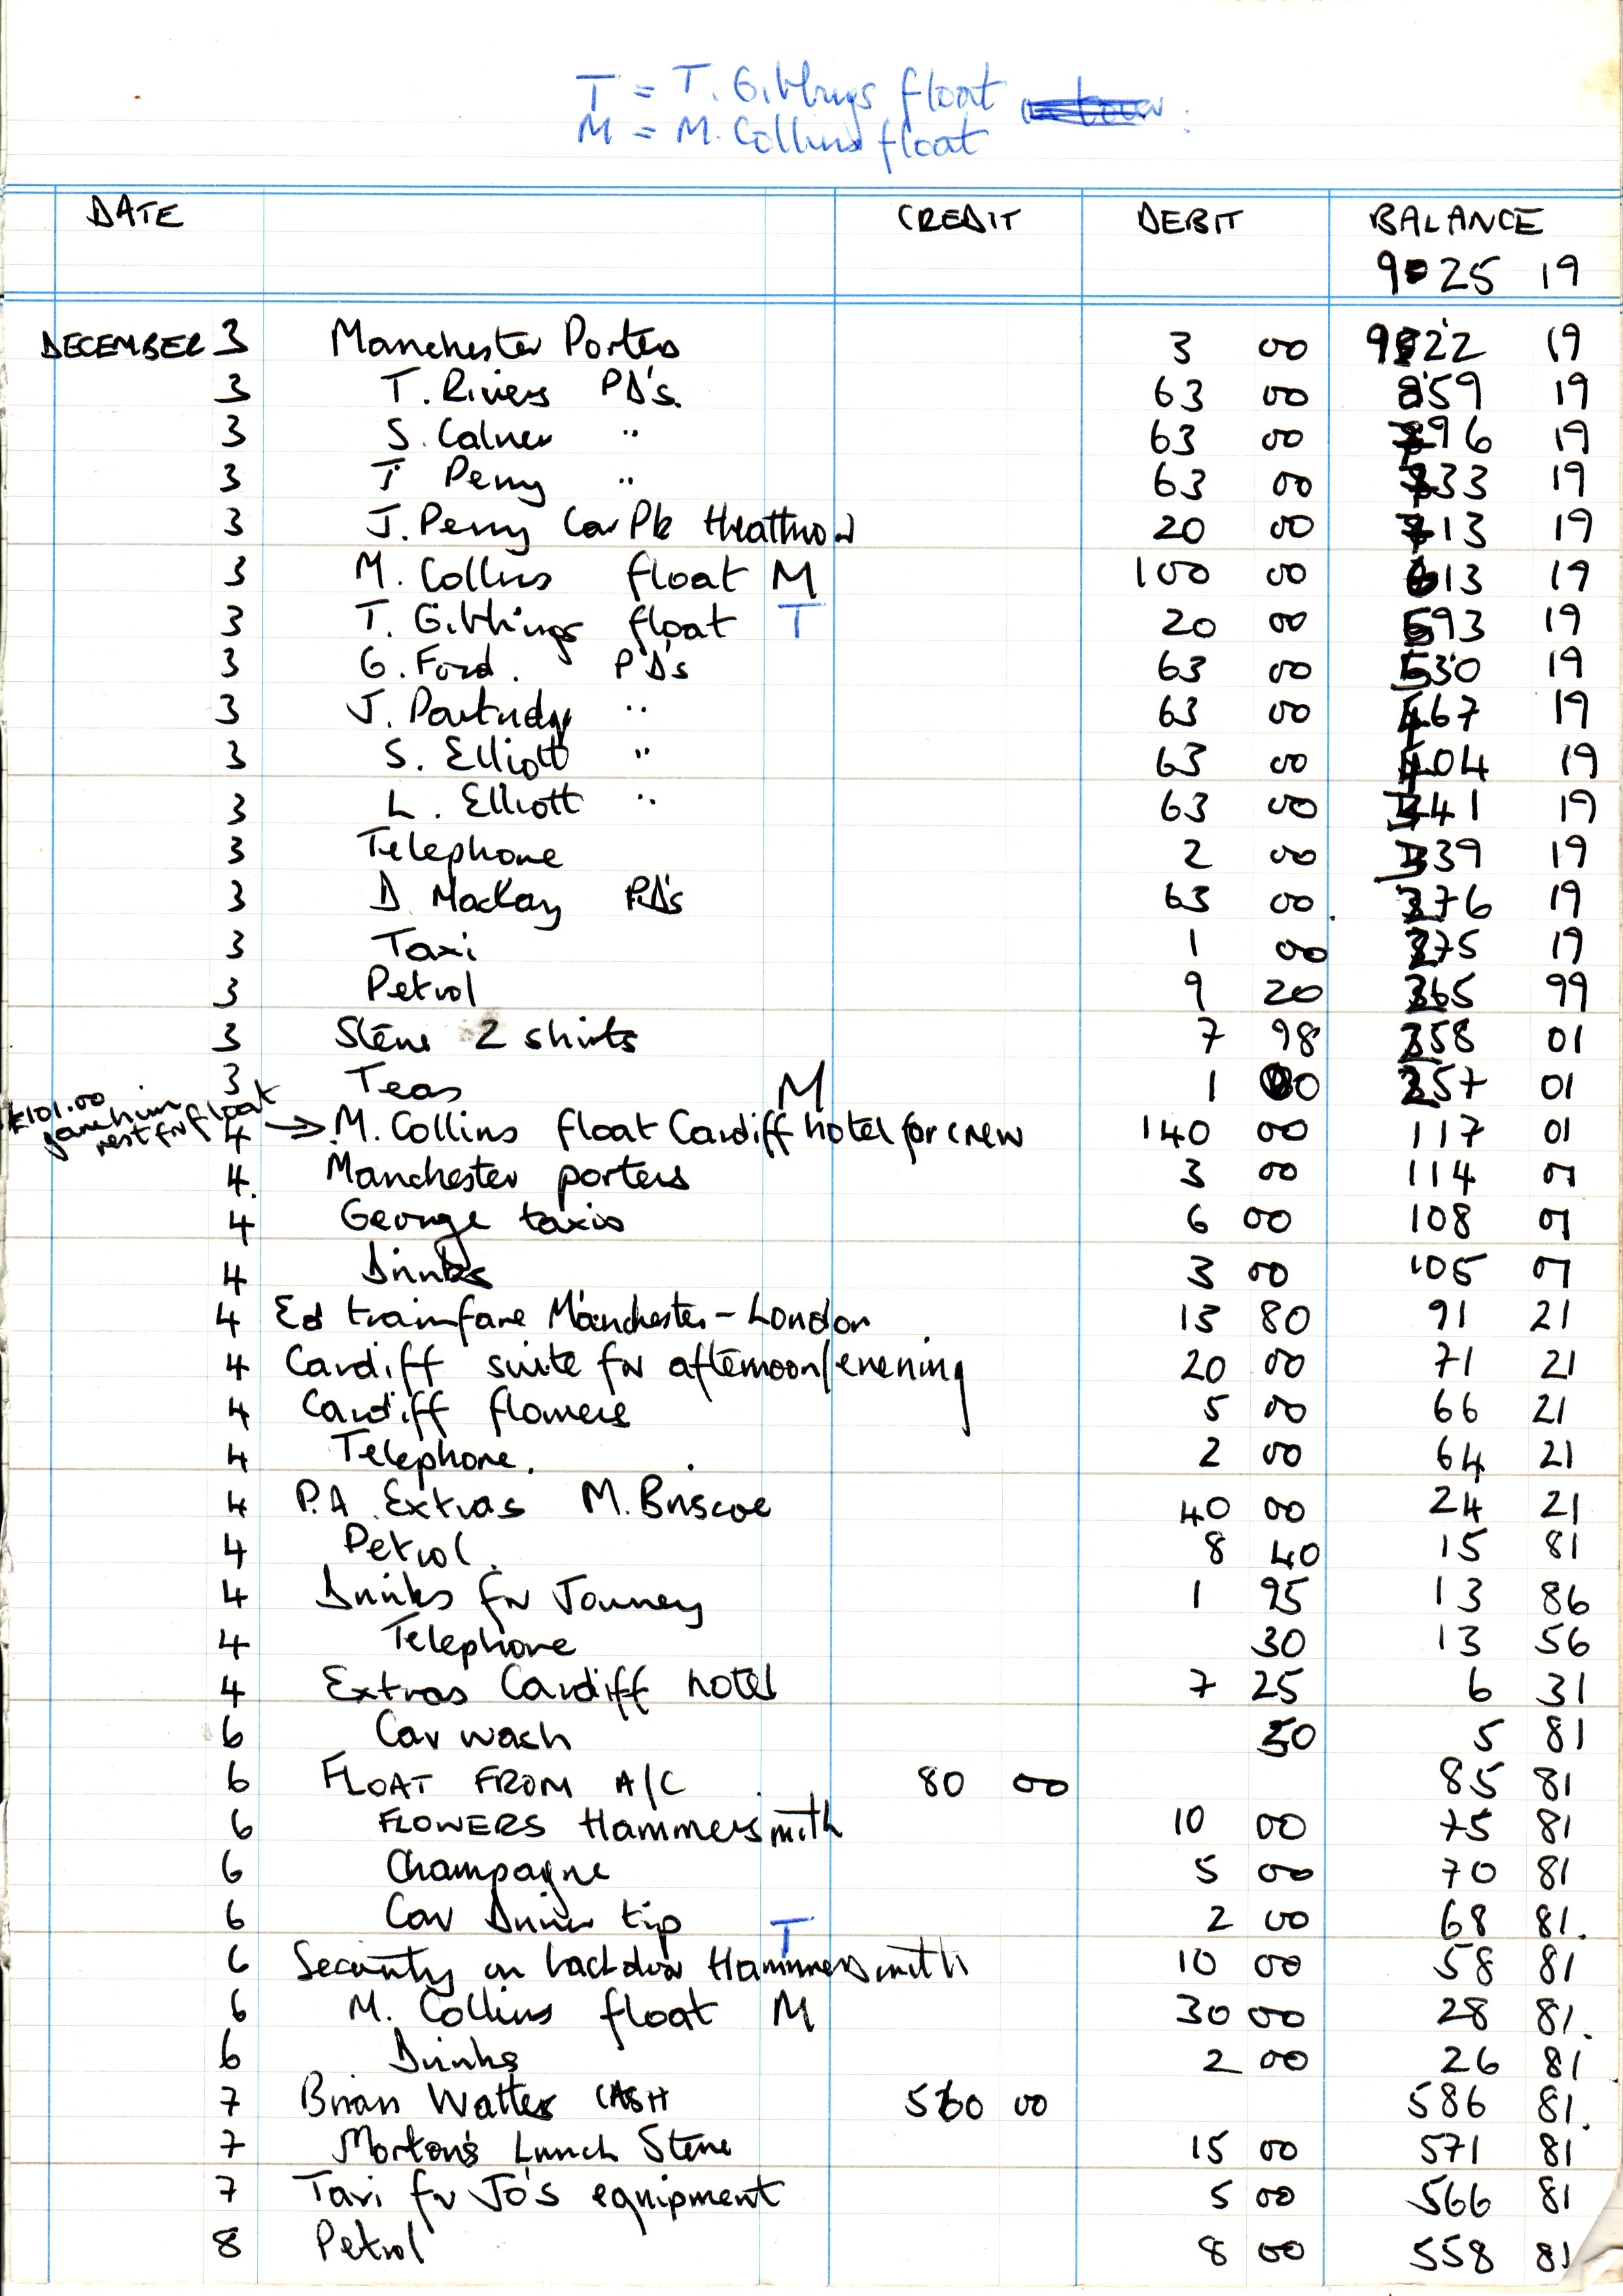 T = T. Gibbings float
M = M. Collins float
DATE CREDIT DEBIT BALANCE
925 19
DECEMBER 3 Manchester Porters 3 00 922 19
3 T. Rivers PD's. 63 00 859 19
3 S. Calver " 63 00 796 19
3 T Perry " 63 00 733 19
3 J. Perry Car Pk Heathrow 20 00 713 19
3 M. Collins float M 100 00 613 19
3 T. Gibbings float T 20 00 593 19
3 G. Ford. PD's 63 00 530 19
3 J. Partridge " 63 00 467 19
3 S. Elliott " 63 00 404 19
3 L. Elliott " 63 00 341 19
3 Telephone 2 00 339 19
3 D. Mackay P.D's 63 00 276 19
3 Taxi 1 00 275 19
3 Petrol 9 20 265 99
3 Steve 2 shirts 7 98 258 01
3 Teas M 1 00 257 01
£101.00 gave him rest for float
4 → M. Collins float Cardiff hotel for crew 140 00 117 01
4. Manchester porters 3 00 114 01
4 George taxis 6 00 108 01
4 Drinks 3 00 105 01
4 Ed trainfare Manchester - London 13 80 91 21
4 Cardiff suite for afternoon/evening 20 00 71 21
4 Cardiff flowers 5 00 66 21
4 Telephone. 2 00 64 21
4 P.A. Extras M. Briscoe 40 00 24 21
4 Petrol. 8 40 15 81
4 Drinks for Journey 1 95 13 86
4 Telephone 30 13 56
4 Extras Cardiff hotel 7 25 6 31
6 Car wash 50 5 81
6 FLOAT FROM A/C 80 00 85 81
6 FLOWERS Hammersmith 10 00 75 81
6 Champagne 5 00 70 81
6 Car Driver tip 2 00 68 81.
6 Security on backdoor Hammersmith T 10 00 58 81
6 M. Collins float M 30 00 28 81.
6 Drinks 2 00 26 81
7 Brian Watters CASH 560 00 586 81.
7 Morton's Lunch Steve 15 00 571 81
7 Taxi for Jo's equipment 5 00 566 81
8 Petrol 8 00 558 81